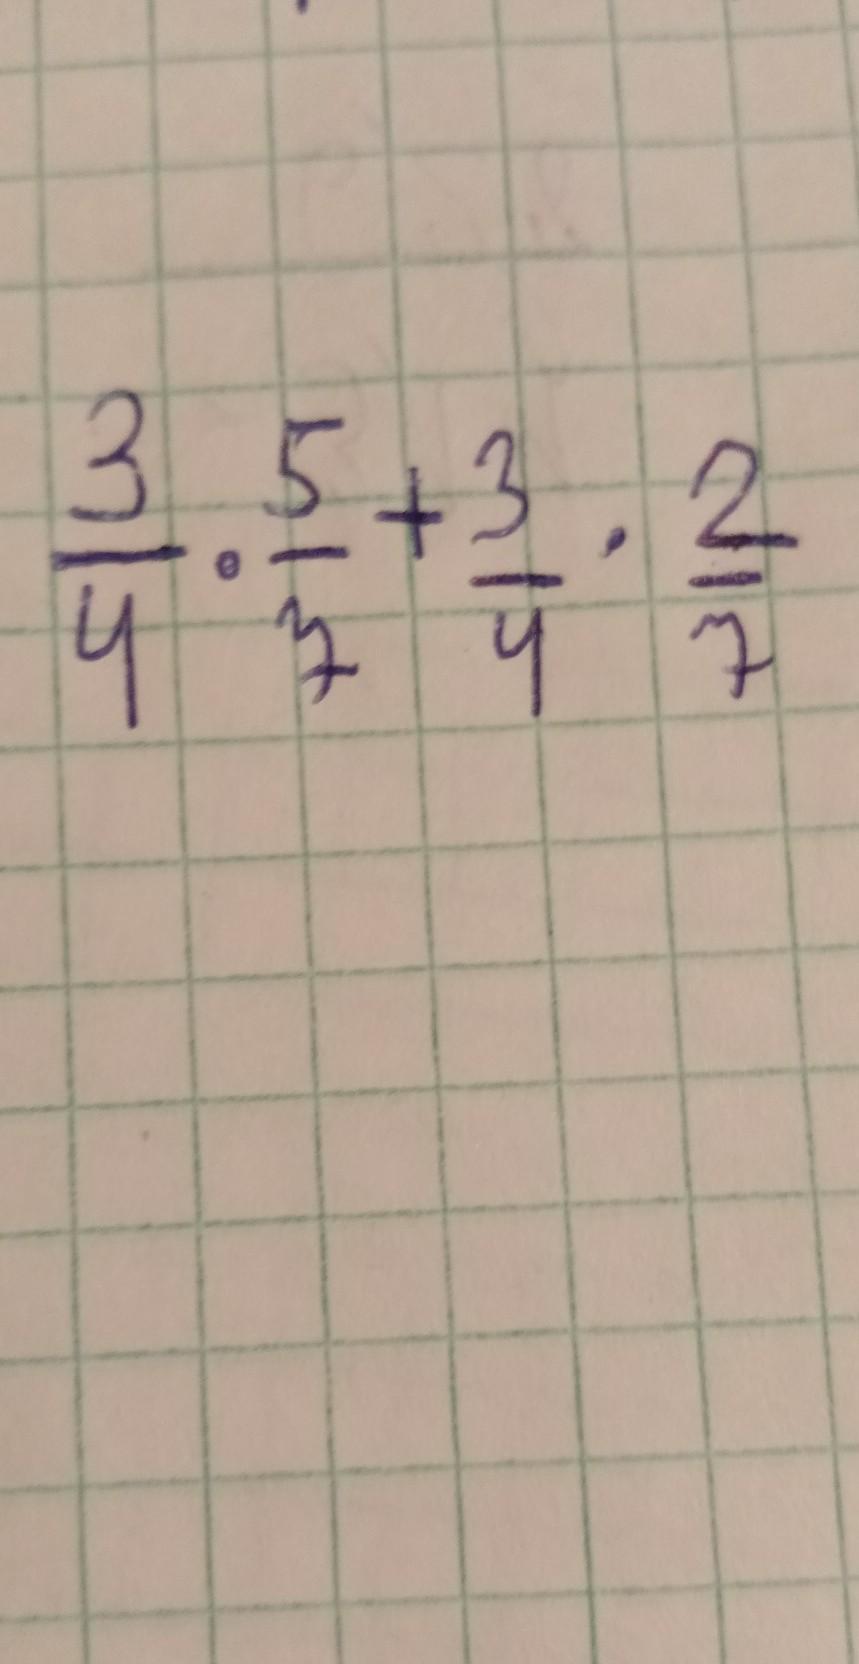 3/4 · 5/7 + 3/4 · 2/7